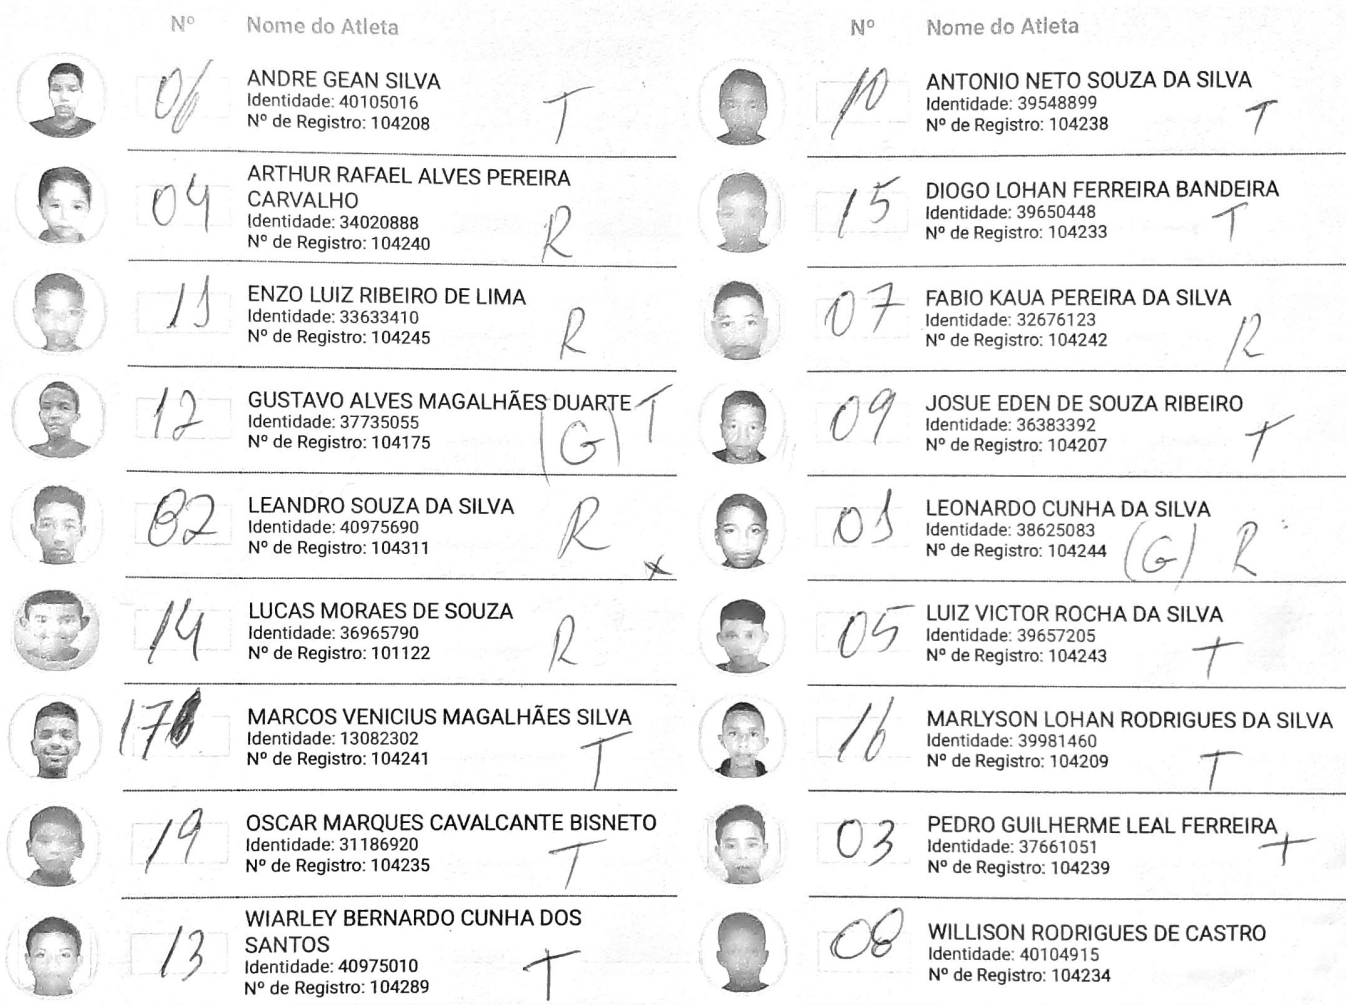 Nº Nome do Atleta
06 ANDRE GEAN SILVA
Identidade: 40105016 T
Nº de Registro: 104208
04 ARTHUR RAFAEL ALVES PEREIRA
CARVALHO
Identidade: 34020888 R
Nº de Registro: 104240
11 ENZO LUIZ RIBEIRO DE LIMA
Identidade: 33633410 R
Nº de Registro: 104245
12 GUSTAVO ALVES MAGALHÃES DUARTE T
Identidade: 37735055 (G)
Nº de Registro: 104175
02 LEANDRO SOUZA DA SILVA
Identidade: 40975690 R
Nº de Registro: 104311 x
14 LUCAS MORAES DE SOUZA
Identidade: 36965790 R
Nº de Registro: 101122
17 MARCOS VENICIUS MAGALHÃES SILVA
Identidade: 13082302 T
Nº de Registro: 104241
19 OSCAR MARQUES CAVALCANTE BISNETO
Identidade: 31186920 T
Nº de Registro: 104235
13 WIARLEY BERNARDO CUNHA DOS
SANTOS
Identidade: 40975010 T
Nº de Registro: 104289
Nº Nome do Atleta
10 ANTONIO NETO SOUZA DA SILVA
Identidade: 39548899 T
Nº de Registro: 104238
15 DIOGO LOHAN FERREIRA BANDEIRA
Identidade: 39650448 T
Nº de Registro: 104233
07 FABIO KAUA PEREIRA DA SILVA
Identidade: 32676123 R
Nº de Registro: 104242
09 JOSUE EDEN DE SOUZA RIBEIRO
Identidade: 36383392 T
Nº de Registro: 104207
01 LEONARDO CUNHA DA SILVA
Identidade: 38625083
Nº de Registro: 104244 (G) R
05 LUIZ VICTOR ROCHA DA SILVA
Identidade: 39657205 T
Nº de Registro: 104243
16 MARLYSON LOHAN RODRIGUES DA SILVA
Identidade: 39981460 T
Nº de Registro: 104209
03 PEDRO GUILHERME LEAL FERREIRA T
Identidade: 37661051
Nº de Registro: 104239
08 WILLISON RODRIGUES DE CASTRO
Identidade: 40104915
Nº de Registro: 104234